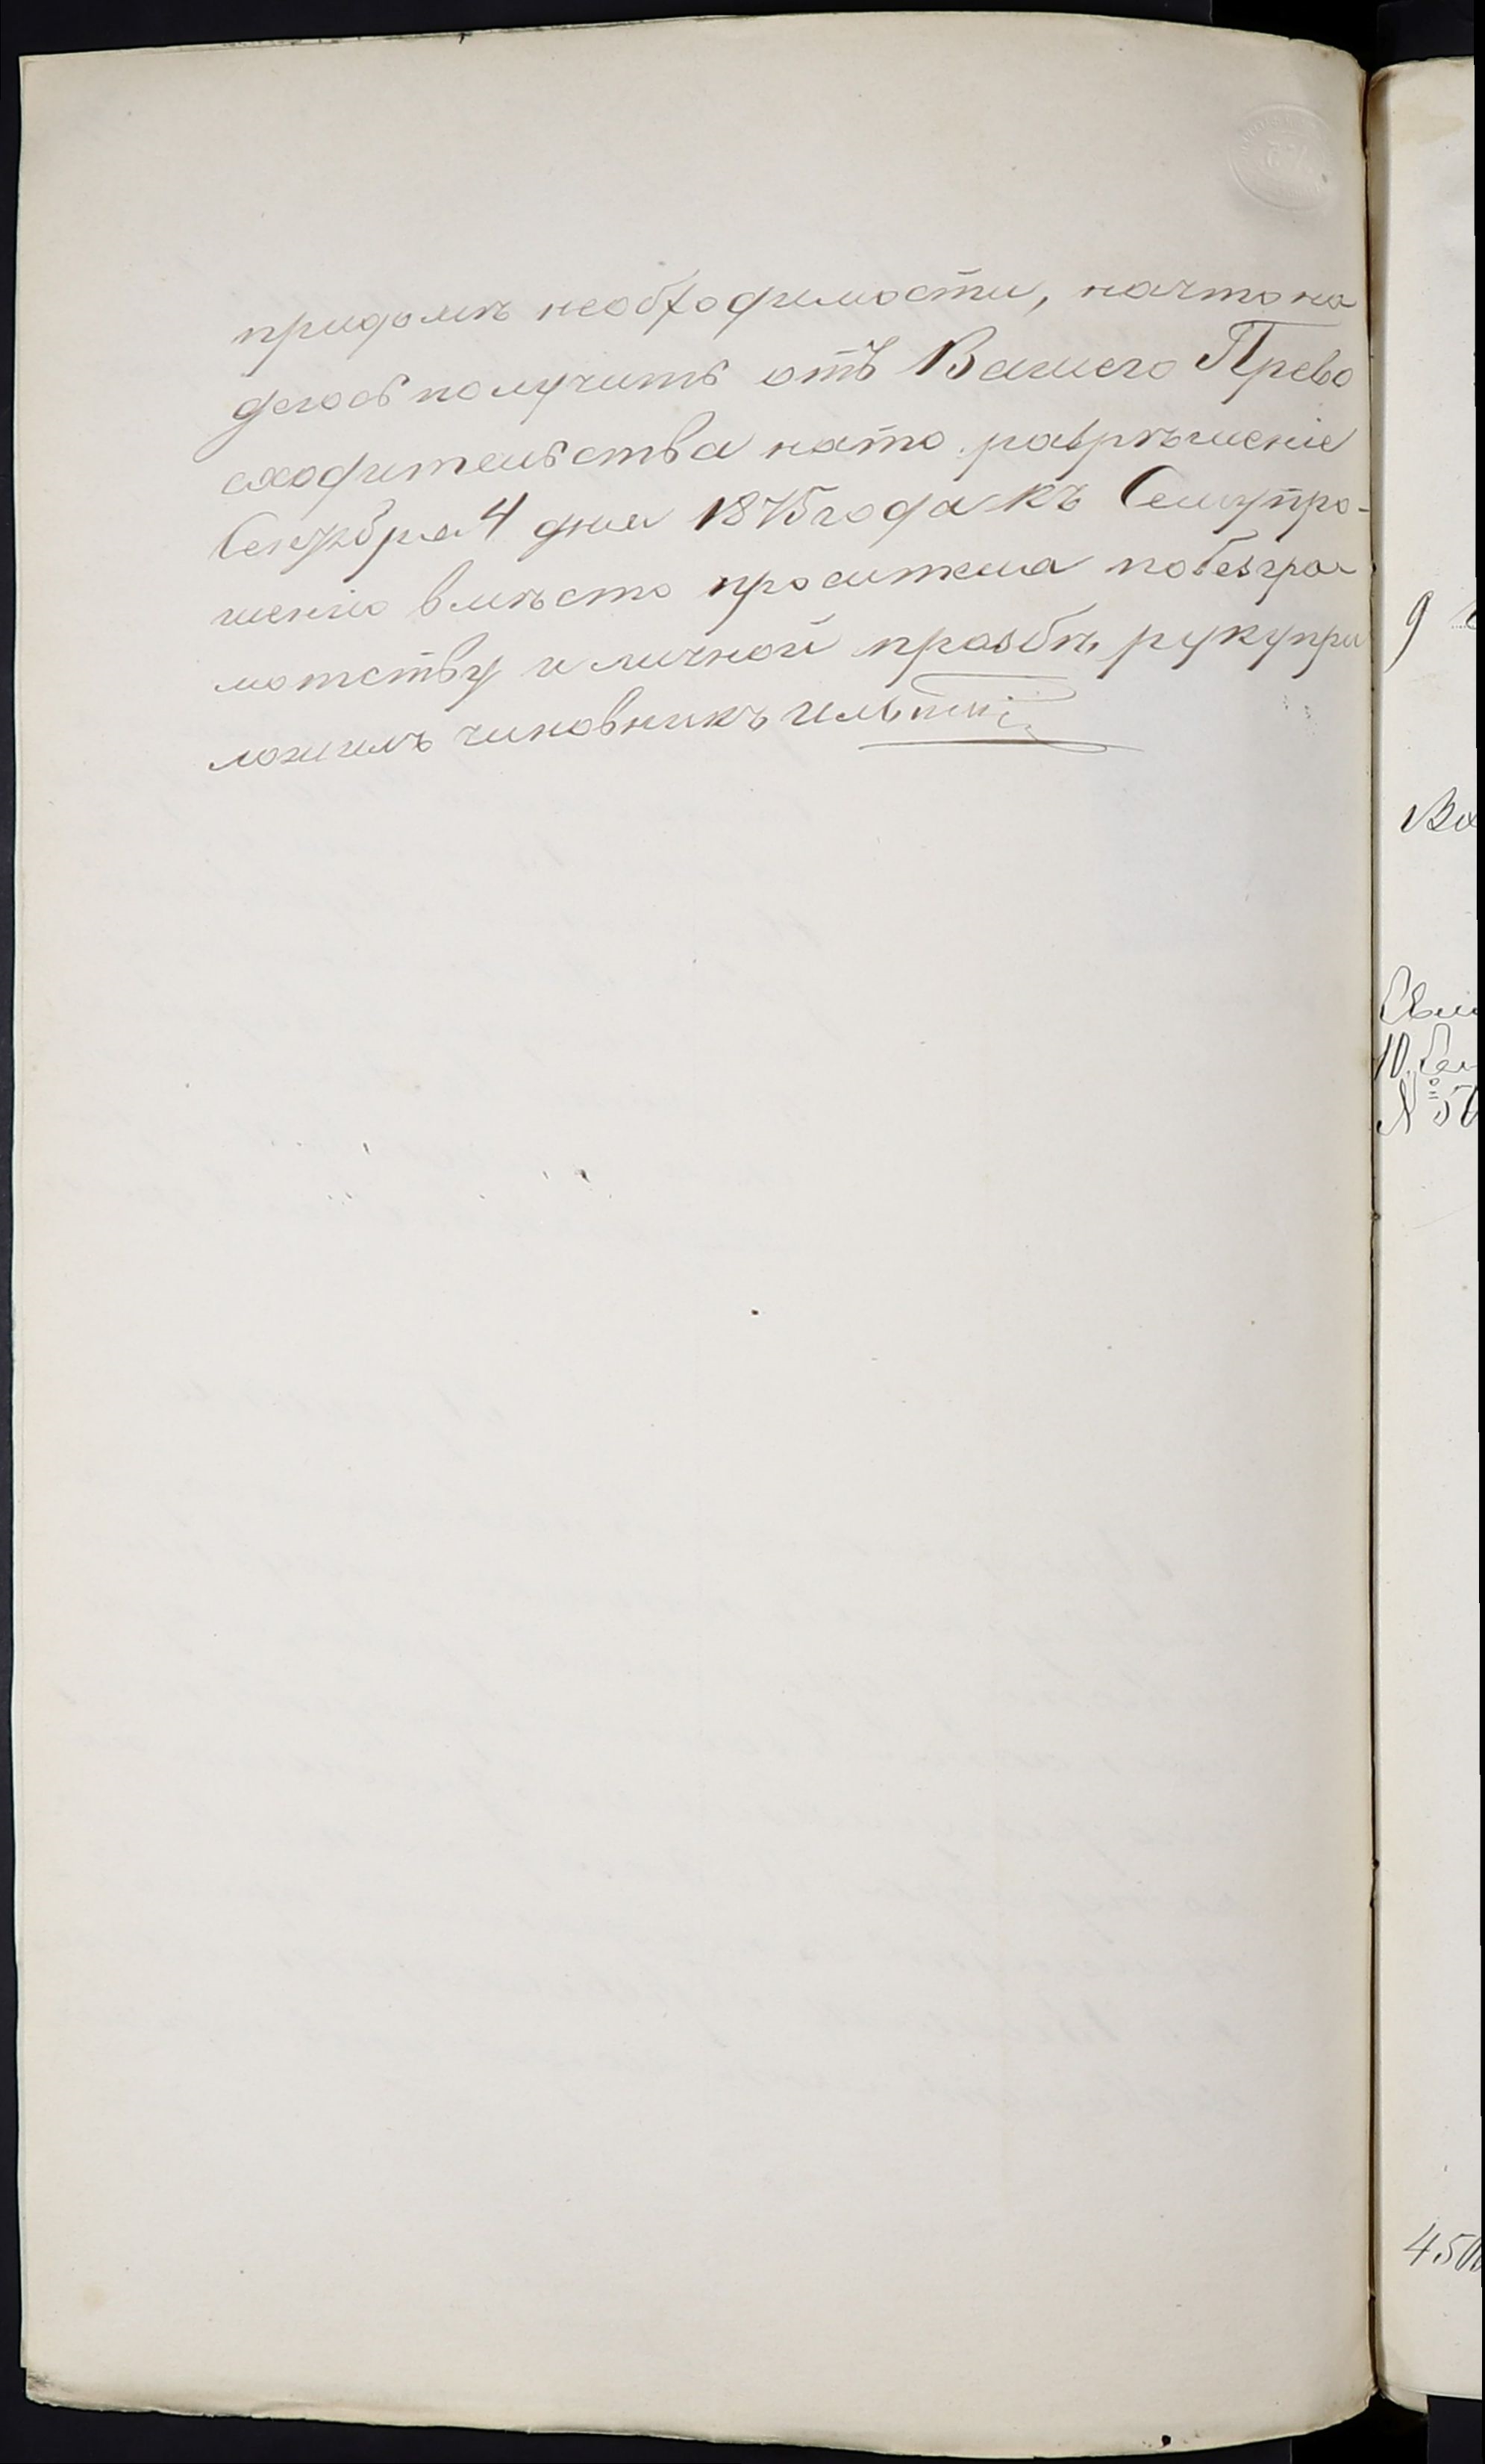 придомъ необходимости, начто на
деюсь получить отъ Вашего Прево
сходительства нато разрѣшение
Сентября 4 дня 1875 года къ Сему про-
шенію вмѣсто просителя побезгра
мотству и личной прозбѣ руку при
ложилъ чиновникъ
9
Ва
10 Сен
№ 50
450